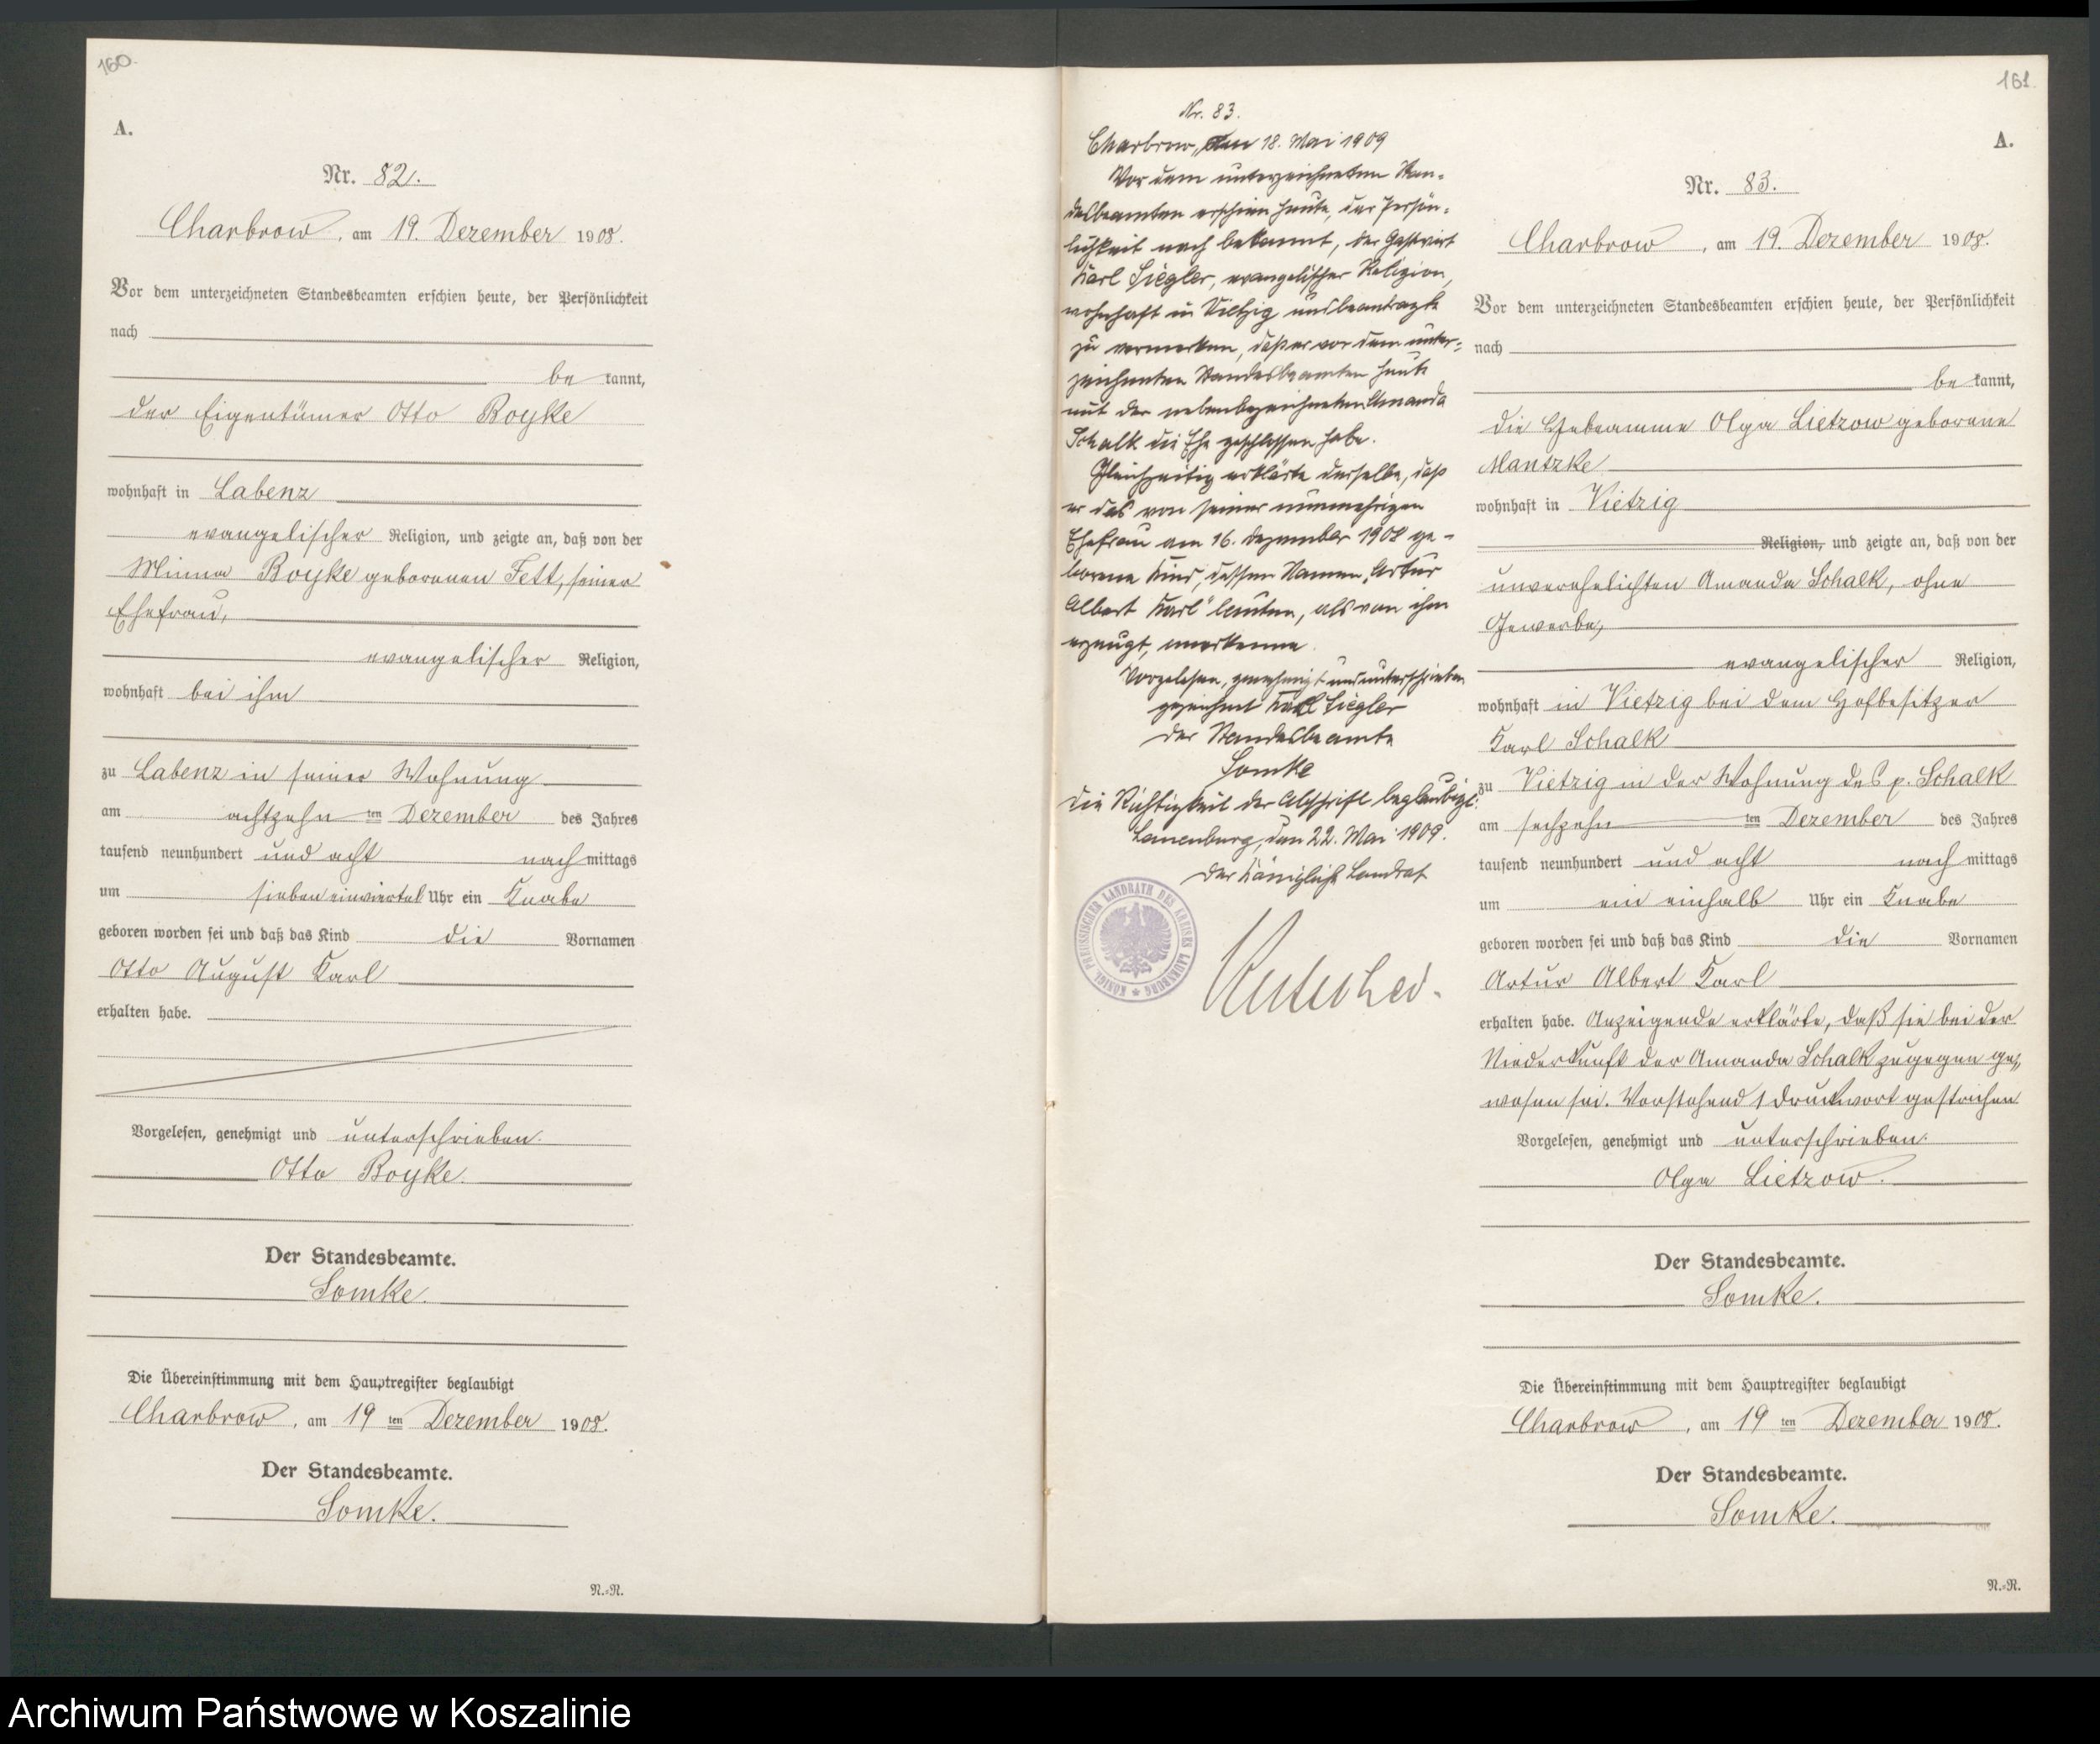 160.
A.
Nr. 82.
Charbrow, am 19. Dezember 1908.
Vor dem unterzeichneten Standesbeamten erschien heute, der Persönlichkeit
nach
be kannt,
der Eigentümer Otto Boyke
wohnhaft in Labenz
evangelischer Religion, und zeigte an, daß von der
Minna Boyke geborenen Fett, seiner
Ehefrau,
evangelischer Religion,
wohnhaft bei ihm
zu Labenz in seiner Wohnung
am achtzehn ten Dezember des Jahres
tausend neunhundert und acht nach mittags
um sieben einviertel Uhr ein Knabe
geboren worden sei und daß das Kind die Vornamen
Otto August Karl
erhalten habe.
Vorgelesen, genehmigt und unterschrieben.
Otto Boyke.
Der Standesbeamte.
Somke.
Die Übereinstimmung mit dem Hauptregister beglaubigt
Charbrow, am 19 ten Dezember 1908.
Der Standesbeamte.
Somke.
N.=N.
Nr. 83.
Charbrow, den 18. Mai 1909
Vor dem unterzeichneten Stan-
desbeamten erschien heute, der Persön-
lichkeit nach bekannt, der Gastwirt
Karl Siegler, evangelischer Religion,
wohnhaft in Vietzig und beantragte
zu vermerken, daß er vor dem unter-
zeichneten Standesbeamten heute
mit der nebenbezeichneten Amanda
Schalk die Ehe geschlossen habe.
Gleichzeitig erklärte derselbe, daß
er das von seiner nunmehrigen
Ehefrau am 16. Dezember 1908 ge-
borene Kind, dessen Namen „Artur
Albert Karl" lauten, als von ihm
erzeugt, anerkenne.
Vorgelesen, genehmigt und unterschrieben
gezeichnet Karl Siegler
Der Standesbeamte
Somke
Die Richtigkeit der Abschrift beglaubigt.
Lauenburg, den 22. Mai 1909.
Der Königliche Landrat
KÖNIGL. PREUSSISCHER LANDRATH DES KREISES LAUENBURG
161.
A.
Nr. 83.
Charbrow, am 19. Dezember 1908.
Vor dem unterzeichneten Standesbeamten erschien heute, der Persönlichkeit
nach
be kannt,
die Hebeamme Olga Lietzow geborene
Mantzke
wohnhaft in Vietzig
Religion, und zeigte an, daß von der
unverehelichten Amanda Schalk, ohne
Gewerbe,
evangelischer Religion,
wohnhaft in Vietzig bei dem Hofbesitzer
Karl Schalk
zu Vietzig in der Wohnung des p. Schalk
am sechzehn ten Dezember des Jahres
tausend neunhundert und acht nach mittags
um ein einhalb Uhr ein Knabe
geboren worden sei und daß das Kind die Vornamen
Artur Albert Karl
erhalten habe. Anzeigende erklärte, daß sie bei der
Niederkunft der Amanda Schalk zugegen ge„
wesen sei. Vorstehend 1 Druckwort gestrichen
Vorgelesen, genehmigt und unterschrieben.
Olga Lietzow.
Der Standesbeamte.
Somke.
Die Übereinstimmung mit dem Hauptregister beglaubigt
Charbrow, am 19 ten Dezember 1908.
Der Standesbeamte.
Somke.
N.=N.
Archiwum Państwowe w Koszalinie